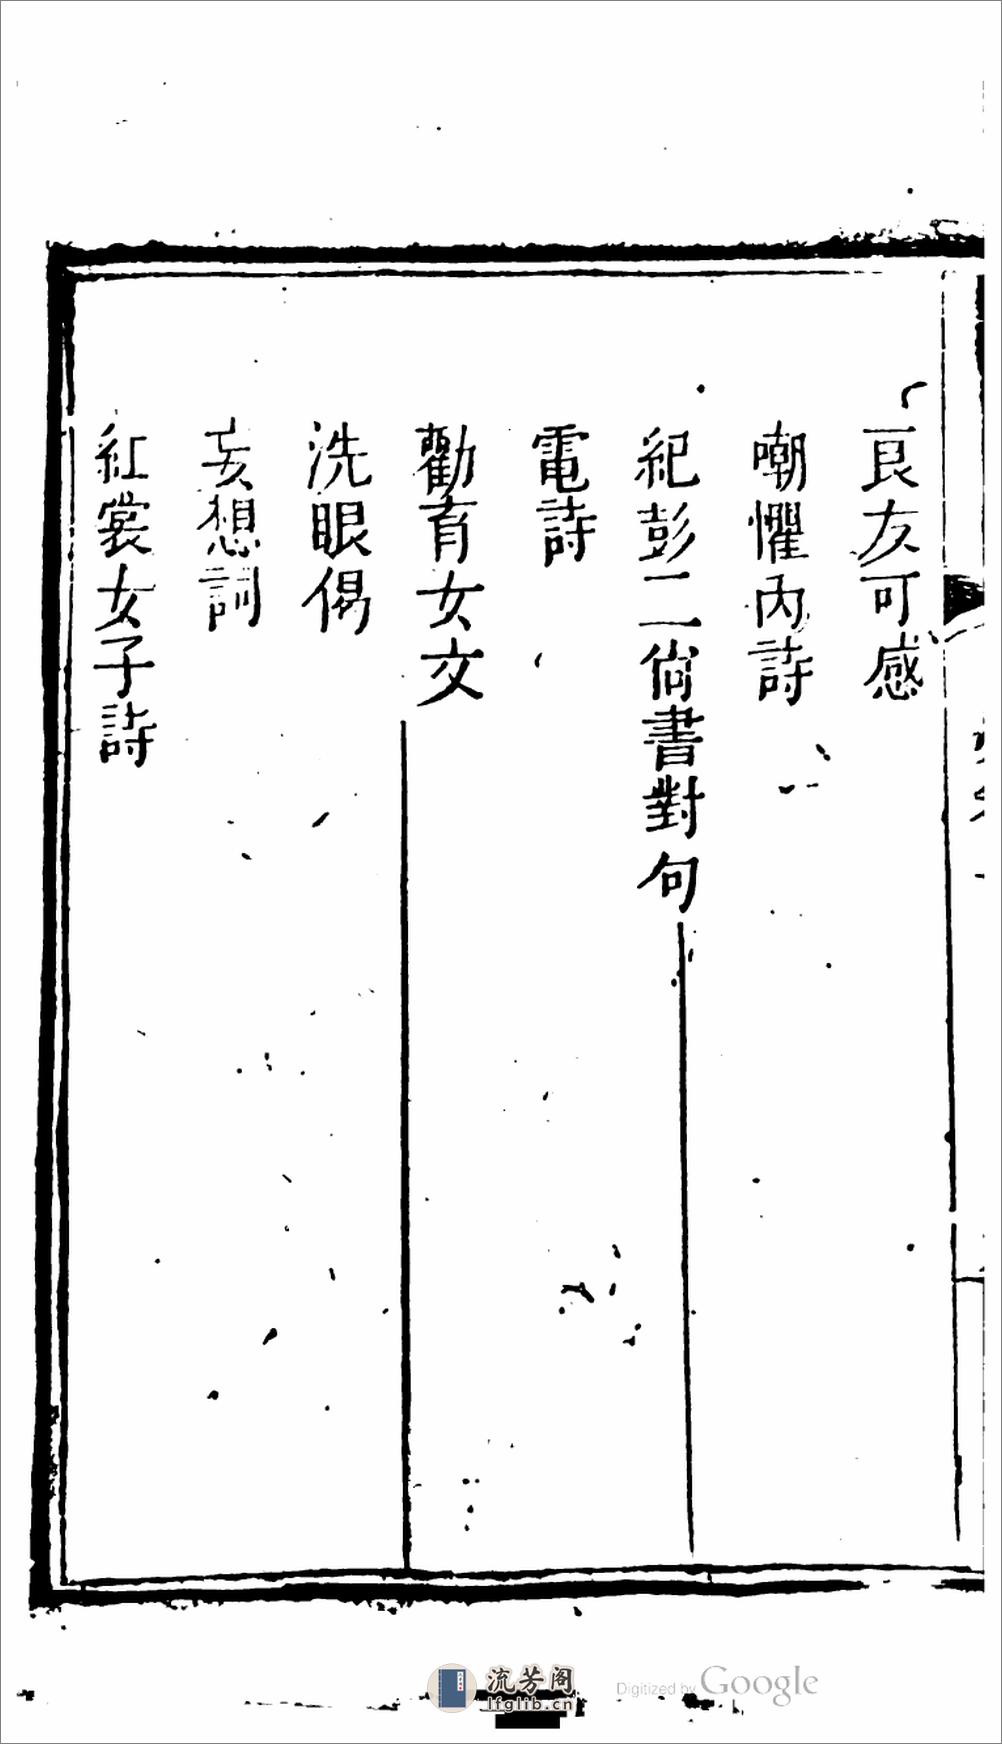 良友可感
嘲懼內詩
紀彭二尚書對句
電詩
勸育女文
洗眼偈
妄想詞
紅裳女子詩
流芳阁
lfglib.cn
Digitized by Google